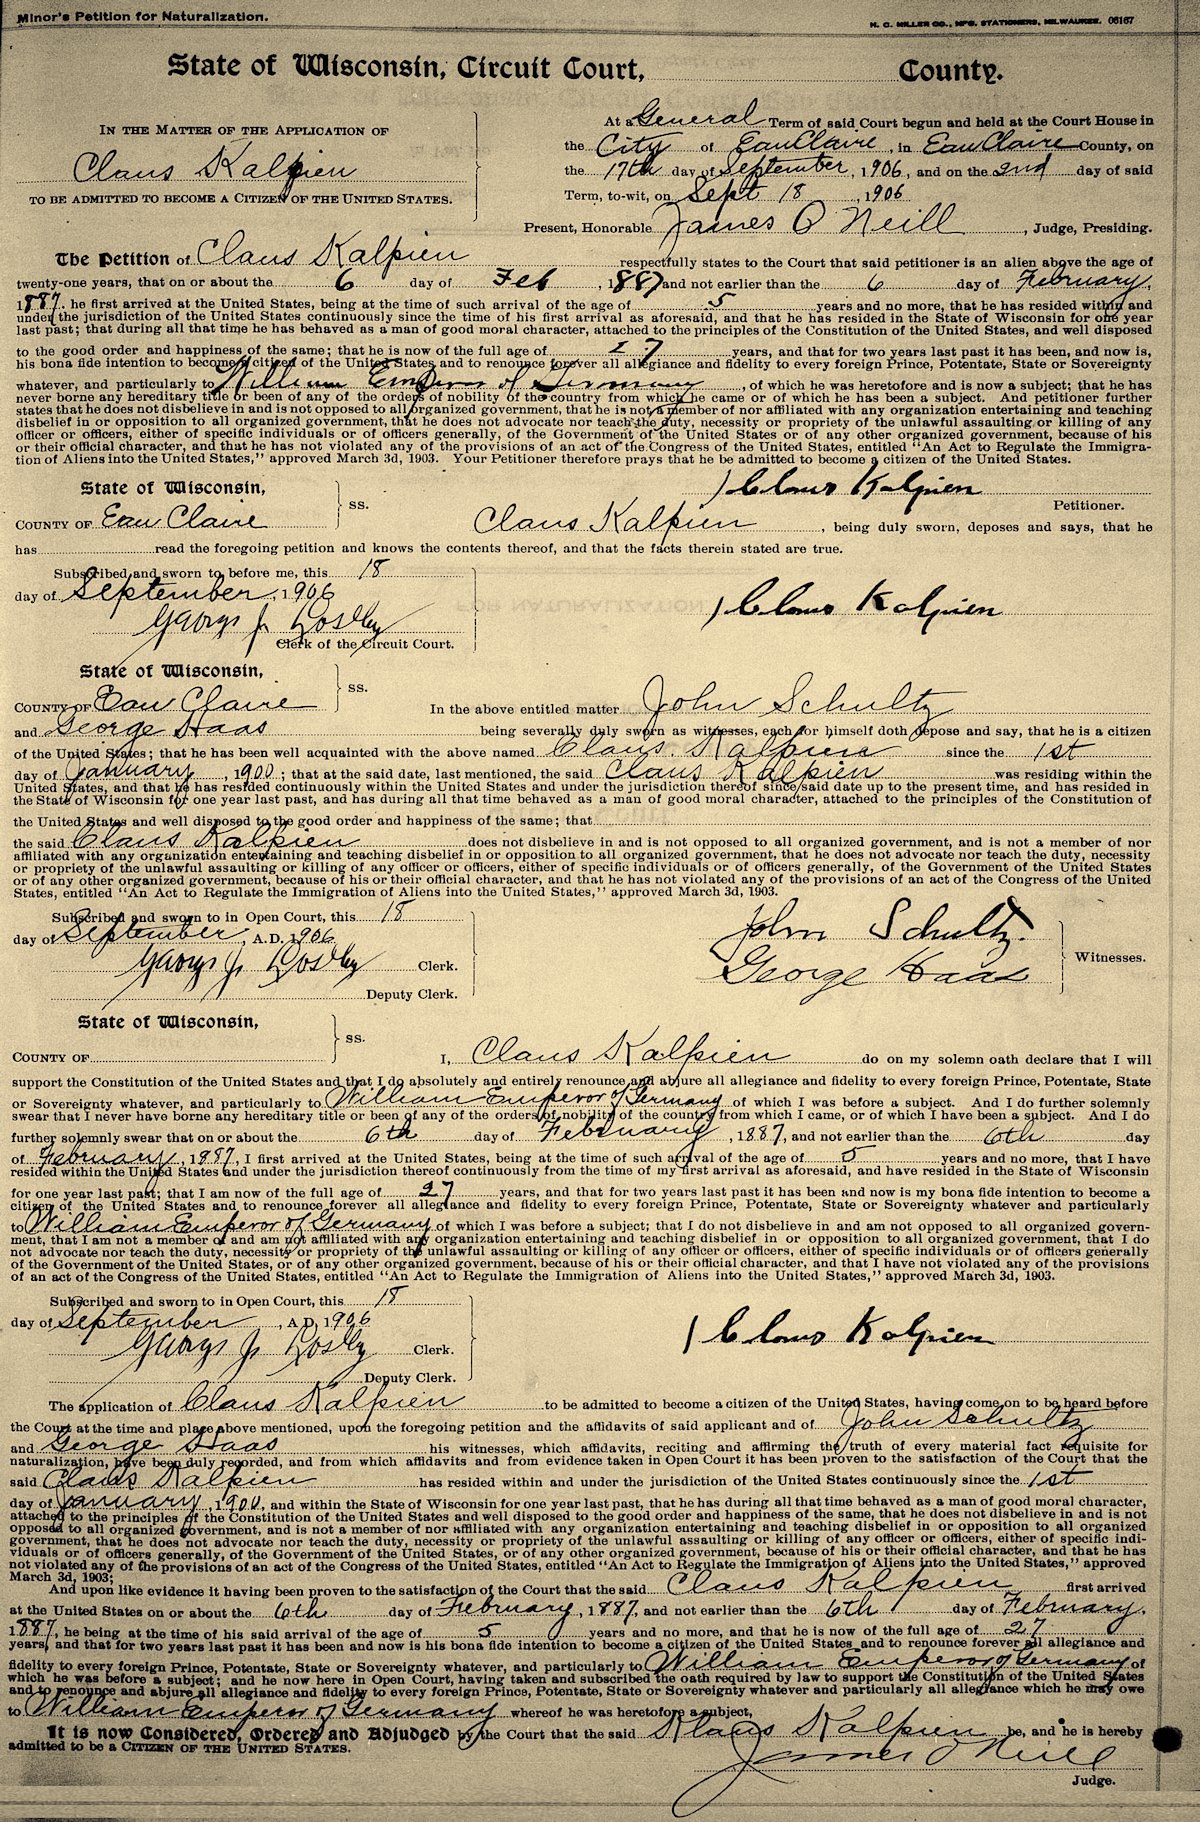 Minor's Petition for Naturalization.
H. C. MILLER CO., MFG. STATIONERS, MILWAUKEE. 06167
State of Wisconsin, Circuit Court, County.
IN THE MATTER OF THE APPLICATION OF
Claus Kalpien
TO BE ADMITTED TO BECOME A CITIZEN OF THE UNITED STATES.
At a General Term of said Court begun and held at the Court House in
the City of Eau Claire, in Eau Claire County, on
the 17th day of September, 1906, and on the 2nd day of said
Term, to-wit, on Sept 18, 1906
Present, Honorable James O Neill, Judge, Presiding.
The Petition of Claus Kalpien respectfully states to the Court that said petitioner is an alien above the age of
twenty-one years, that on or about the 6 day of Feb, 1887 and not earlier than the 6 day of February,
1887. he first arrived at the United States, being at the time of such arrival of the age of 5 years and no more, that he has resided within and
under the jurisdiction of the United States continuously since the time of his first arrival as aforesaid, and that he has resided in the State of Wisconsin for one year
last past; that during all that time he has behaved as a man of good moral character, attached to the principles of the Constitution of the United States, and well disposed
to the good order and happiness of the same; that he is now of the full age of 27 years, and that for two years last past it has been, and now is,
his bona fide intention to become a citizen of the United States and to renounce forever all allegiance and fidelity to every foreign Prince, Potentate, State or Sovereignty
whatever, and particularly to William Emperor of Germany, of which he was heretofore and is now a subject; that he has
never borne any hereditary title or been of any of the orders of nobility of the country from which he came or of which he has been a subject. And petitioner further
states that he does not disbelieve in and is not opposed to all organized government, that he is not a member of nor affiliated with any organization entertaining and teaching
disbelief in or opposition to all organized government, that he does not advocate nor teach the duty, necessity or propriety of the unlawful assaulting or killing of any
officer or officers, either of specific individuals or of officers generally, of the Government of the United States or of any other organized government, because of his
or their official character, and that he has not violated any of the provisions of an act of the Congress of the United States, entitled "An Act to Regulate the Immigra-
tion of Aliens into the United States," approved March 3d, 1903. Your Petitioner therefore prays that he be admitted to become a citizen of the United States.
State of Wisconsin,
Claus Kalpien
Petitioner.
COUNTY OF Eau Claire ss. Claus Kalpien, being duly sworn, deposes and says, that he
has read the foregoing petition and knows the contents thereof, and that the facts therein stated are true.
Subscribed and sworn to before me, this 18
day of September, 1906
Claus Kalpien
Clerk of the Circuit Court.
State of Wisconsin,
COUNTY OF Eau Claire ss. In the above entitled matter John Schultz
and George Haas being severally duly sworn as witnesses, each for himself doth depose and say, that he is a citizen
of the United States; that he has been well acquainted with the above named Claus Kalpien since the 1st
day of January, 1900; that at the said date, last mentioned, the said Claus Kalpien was residing within the
United States, and that he has resided continuously within the United States and under the jurisdiction thereof since said date up to the present time, and has resided in
the State of Wisconsin for one year last past, and has during all that time behaved as a man of good moral character, attached to the principles of the Constitution of
the United States and well disposed to the good order and happiness of the same; that
the said Claus Kalpien does not disbelieve in and is not opposed to all organized government, and is not a member of nor
affiliated with any organization entertaining and teaching disbelief in or opposition to all organized government, that he does not advocate nor teach the duty, necessity
or propriety of the unlawful assaulting or killing of any officer or officers, either of specific individuals or of officers generally, of the Government of the United States
or of any other organized government, because of his or their official character, and that he has not violated any of the provisions of an act of the Congress of the United
States, entitled "An Act to Regulate the Immigration of Aliens into the United States," approved March 3d, 1903.
Subscribed and sworn to in Open Court, this 18
day of September, A.D. 1906
Clerk.
Deputy Clerk.
John Schultz.
George Haas
Witnesses.
State of Wisconsin,
COUNTY OF ss. I, Claus Kalpien do on my solemn oath declare that I will
support the Constitution of the United States and that I do absolutely and entirely renounce and abjure all allegiance and fidelity to every foreign Prince, Potentate, State
or Sovereignty whatever, and particularly to William Emperor of Germany of which I was before a subject. And I do further solemnly
swear that I never have borne any hereditary title or been of any of the orders of nobility of the country from which I came, or of which I have been a subject. And I do
further solemnly swear that on or about the 6th day of February, 1887, and not earlier than the 6th day
of February, 1887, I first arrived at the United States, being at the time of such arrival of the age of 5 years and no more, that I have
resided within the United States and under the jurisdiction thereof continuously from the time of my first arrival as aforesaid, and have resided in the State of Wisconsin
for one year last past; that I am now of the full age of 27 years, and that for two years last past it has been and now is my bona fide intention to become a
citizen of the United States and to renounce forever all allegiance and fidelity to every foreign Prince, Potentate, State or Sovereignty whatever and particularly
to William Emperor of Germany of which I was before a subject; that I do not disbelieve in and am not opposed to all organized govern-
ment, that I am not a member of and am not affiliated with any organization entertaining and teaching disbelief in or opposition to all organized government, that I do
not advocate nor teach the duty, necessity or propriety of the unlawful assaulting or killing of any officer or officers, either of specific individuals or of officers generally
of the Government of the United States, or of any other organized government, because of his or their official character, and that I have not violated any of the provisions
of an act of the Congress of the United States, entitled "An Act to Regulate the Immigration of Aliens into the United States," approved March 3d, 1903.
Subscribed and sworn to in Open Court, this 18
day of September, A.D. 1906
Claus Kalpien
Clerk.
Deputy Clerk.
The application of Claus Kalpien to be admitted to become a citizen of the United States, having come on to be heard before
the Court at the time and place above mentioned, upon the foregoing petition and the affidavits of said applicant and of John Schultz
and George Haas his witnesses, which affidavits, reciting and affirming the truth of every material fact requisite for
naturalization, have been duly recorded, and from which affidavits and from evidence taken in Open Court it has been proven to the satisfaction of the Court that the
said Claus Kalpien has resided within and under the jurisdiction of the United States continuously since the 1st
day of January, 1900, and within the State of Wisconsin for one year last past, that he has during all that time behaved as a man of good moral character,
attached to the principles of the Constitution of the United States and well disposed to the good order and happiness of the same, that he does not disbelieve in and is not
opposed to all organized government, and is not a member of nor affiliated with any organization entertaining and teaching disbelief in or opposition to all organized
government, that he does not advocate nor teach the duty, necessity or propriety of the unlawful assaulting or killing of any officer or officers, either of specific indi-
viduals or of officers generally, of the Government of the United States, or of any other organized government, because of his or their official character, and that he has
not violated any of the provisions of an act of the Congress of the United States, entitled "An Act to Regulate the Immigration of Aliens into the United States," approved
March 3d, 1903:
And upon like evidence it having been proven to the satisfaction of the Court that the said Claus Kalpien first arrived
at the United States on or about the 6th day of February, 1887, and not earlier than the 6th day of February,
1887, he being at the time of his said arrival of the age of 5 years and no more, and that he is now of the full age of 27
years, and that for two years last past it has been and now is his bona fide intention to become a citizen of the United States and to renounce forever all allegiance and
fidelity to every foreign Prince, Potentate, State or Sovereignty whatever, and particularly to William Emperor of Germany of
which he was before a subject; and he now here in Open Court, having taken and subscribed the oath required by law to support the Constitution of the United States
and to renounce and abjure all allegiance and fidelity to every foreign Prince, Potentate, State or Sovereignty whatever and particularly all allegiance which he may owe
to William Emperor of Germany whereof he was heretofore a subject,
It is now Considered, Ordered and Adjudged by the Court that the said Klaus Kalpien be, and he is hereby
admitted to be a CITIZEN OF THE UNITED STATES.
James O Neill
Judge.